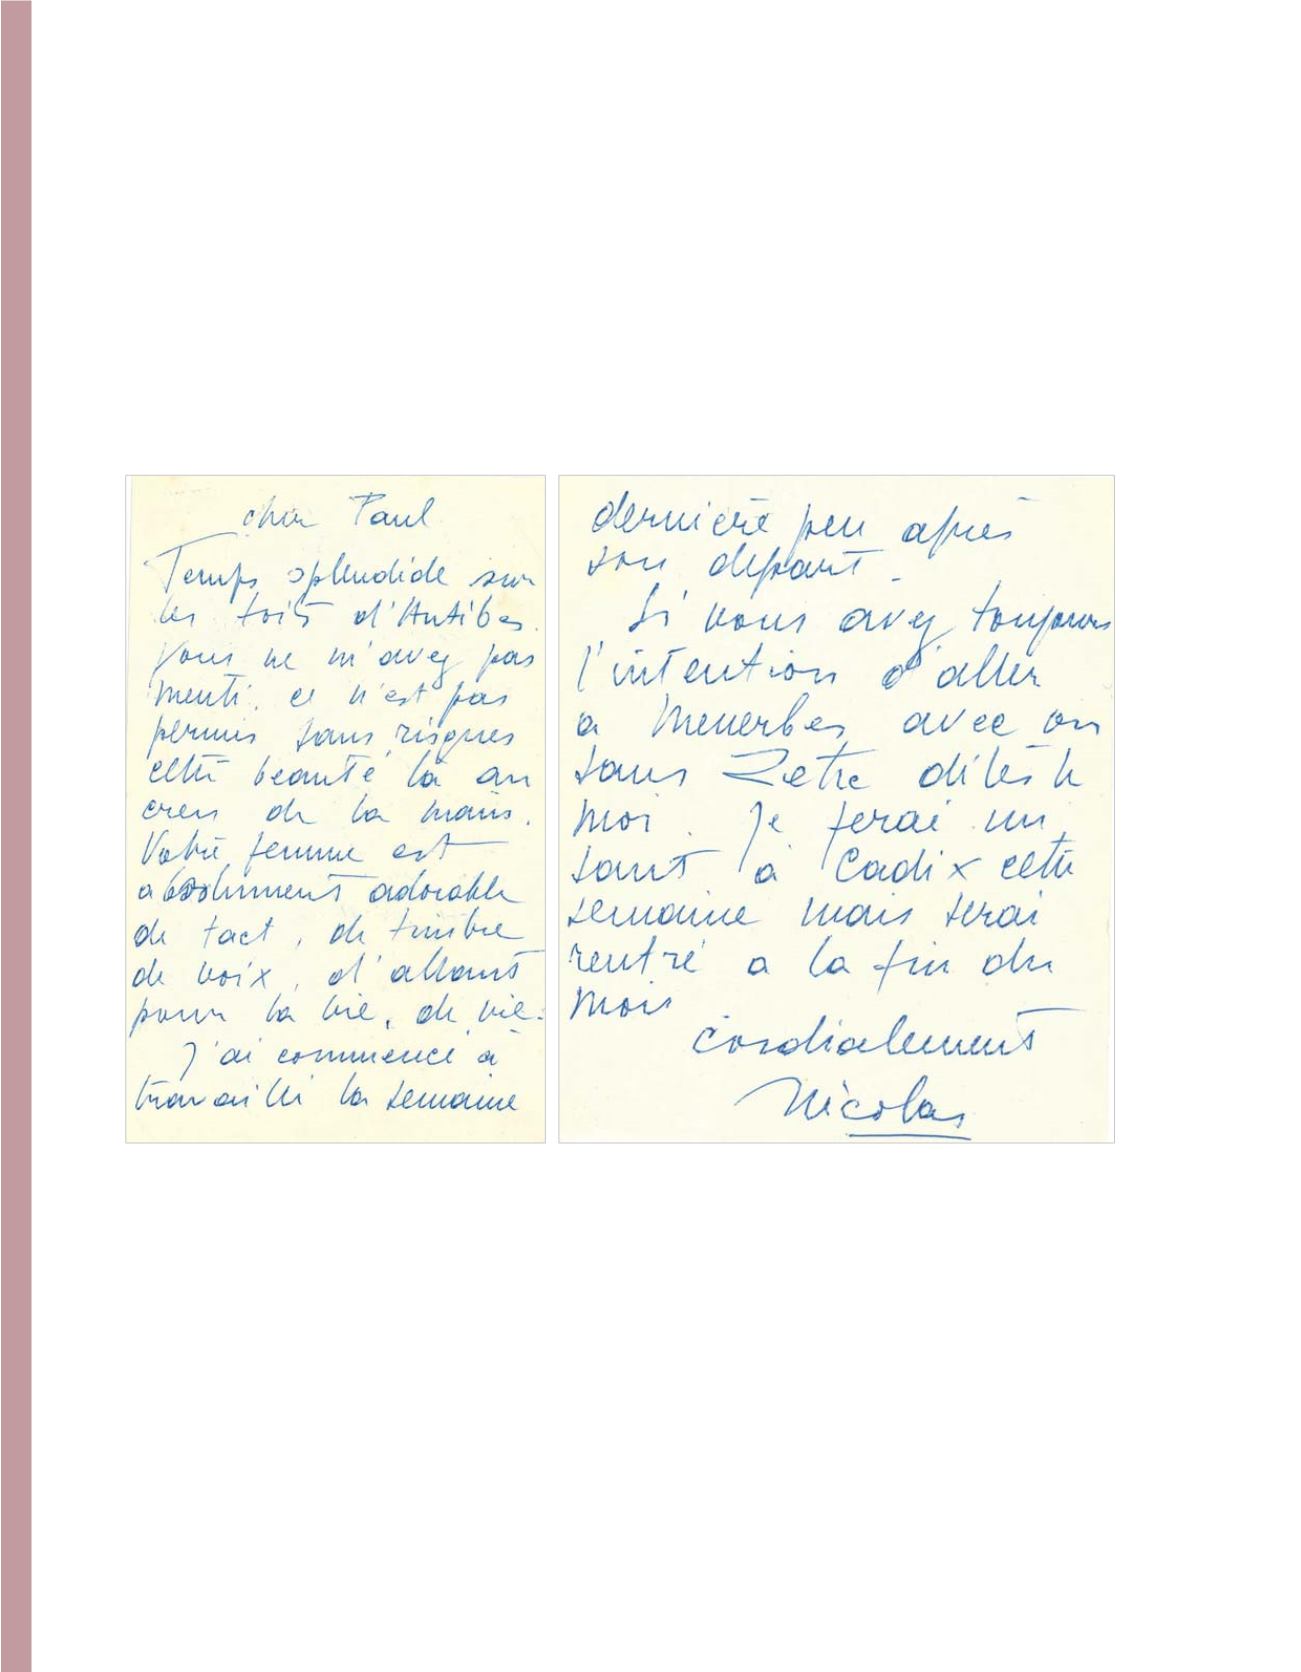 cher Paul
Temps splendide sur
les toits d'Antibes.
Vous ne m'avez pas
menti, ce n'est pas
permis sans risques
cette beauté là au
creux de la main.
Votre femme est
absolument adorable
de tact, de timbre
de voix, d'allant
pour la vie, de vie.
J'ai commencé à
travailler la semaine
dernière peu après
son départ.
Si vous avez toujours
l'intention d'aller
a Menerbes avec ou
sans dites le
moi. Je ferai un
saut à Cadix cette
semaine mais serai
rentré a la fin du
mois
Cordialement
Nicolas